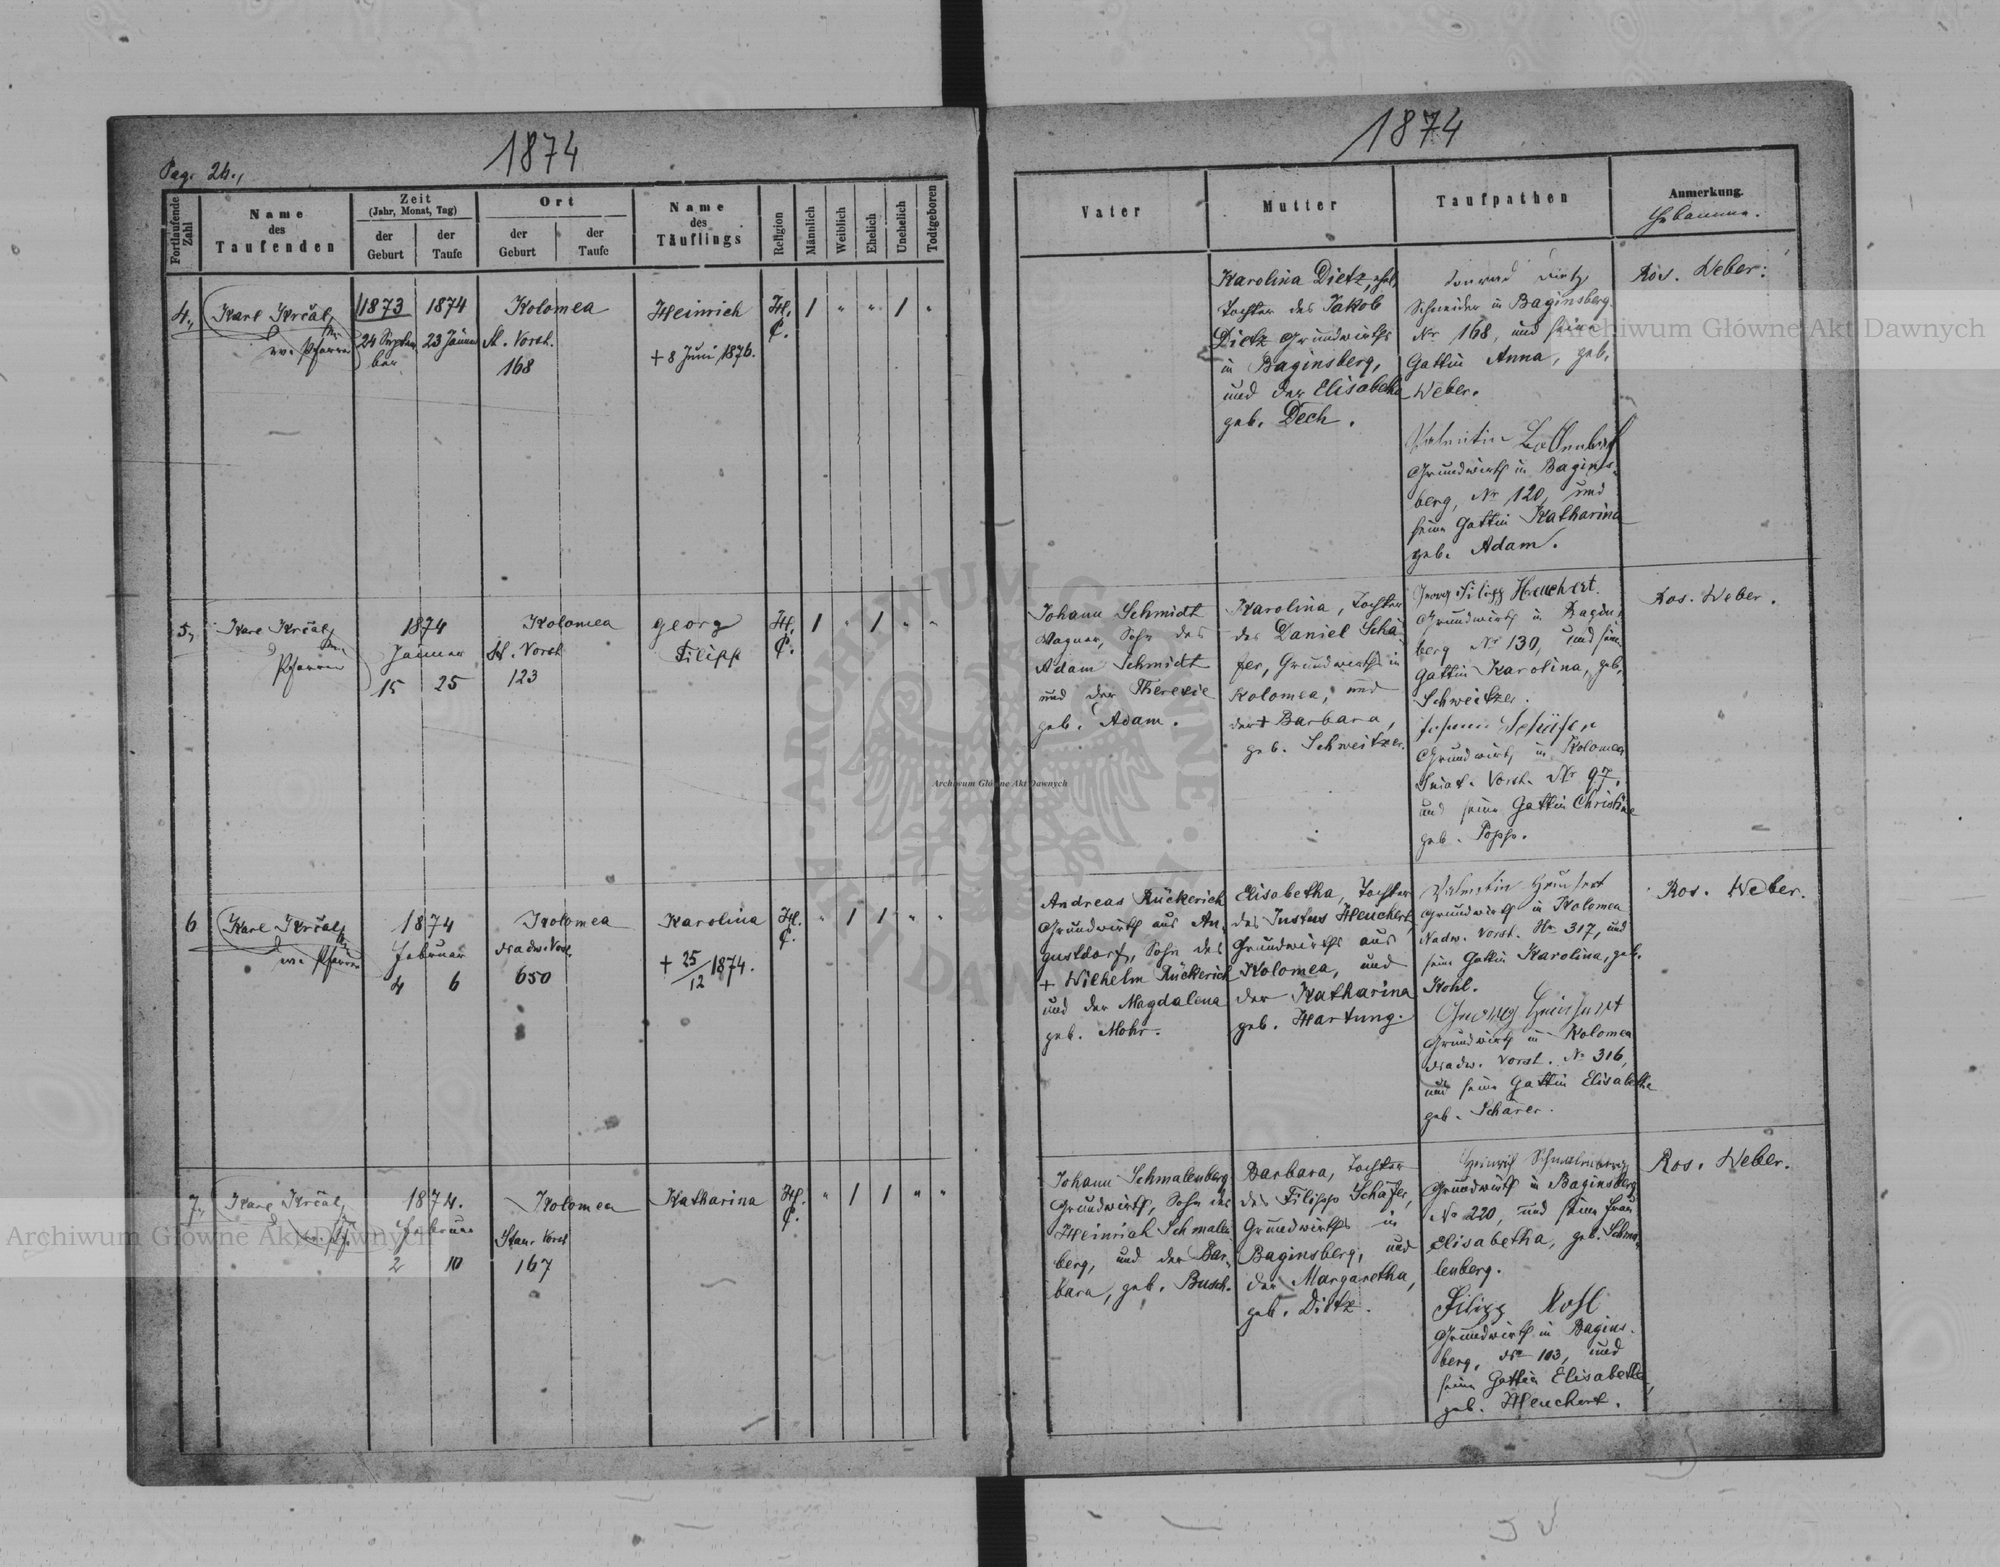 Pag. 24.,
1874
Fortlaufende Zahl
Name
des
Taufenden
Zeit
(Jahr, Monat, Tag)
der
Geburt
der
Taufe
Ort
der
Geburt
der
Taufe
Name
des
Täuflings
Religion
Männlich
Weiblich
Ehelich
Unehelich
Todtgeboren
4.,
Karl Krčal,
ev. Pfarrer
1873
24 Septem
ber
1874
23 Jänner
Kolomea
Vorst.
168
Heinrich
+ 8 Juni 1876.
H.
C.
1 " " 1 "
5.,
Karl Krčal,
Pfarrer
1874
Jänner
15 25
Kolomea
Vorst
123
Georg
Filipp
H.
C.
1 " 1 " "
6
Karl Krčal,
ev. Pfarrer
1874
Februar
4 6
Kolomea
Nadw. Vorst.
650
Karolina
+ 25/12 1874.
H.
C.
" 1 1 " "
7.,
Karl Krčal,
1874.
Februar
2 10
Kolomea
Stan. Vorst
167
Katharina
H.
C.
" 1 1 " "
1874
Vater
Mutter
Taufpathen
Anmerkung.
Hebamme.
Karolina Dietz, ehel.
Tochter des Jakob
Dietz Grundwirths
in Baginsberg,
und der Elisabetha
geb. Dech.
Konrad Dietz,
Schneider in Baginsberg
Nr 168, und seine
Gattin Anna, geb.
Weber.
Valentin
Grundwirth in Bagins-
berg, Nr 120, und
seine Gattin Katharina
geb. Adam.
Ros. Weber.
Johann Schmidt
Wagner, Sohn des
Adam Schmidt
und der Theresie
geb. Adam.
Karolina, Tochter
des Daniel Schä-
fer, Grundwirths in
Kolomea, und
der + Barbara,
geb. Schweitzer.
Georg Filipp Heuchert.
Grundwirth in Bagins
berg Nr 130, und seine
Gattin Karolina, geb.
Schweitzer.
Johann Schäfer,
Grundwirth in Kolomea
Sniat. Vorst. Nr 97,
und seine Gattin Christine
geb. Popp.
Ros. Weber.
Andreas Rückerich
Grundwirth aus Au-
gustdorf, Sohn des
+ Wilhelm Rückerich
und der Magdalena
geb. Mohr.
Elisabetha, Tochter
des Justus Heuchert,
Grundwirths aus
Kolomea, und
der Katharina
geb. Hartung.
Valentin Heuchert
Grundwirth in Kolomea
Nadw. Vorst. Nr 317, und
seine Gattin Karolina, geb.
Kohl.
Georg Heuchert
Grundwirth in Kolomea
Nadw. Vorst. Nr 316,
und seine Gattin Elisabetha
geb. Schärer.
Ros. Weber.
Johann Schmalenberg
Grundwirth, Sohn des
Heinrich Schmalen
berg, und der Bar-
bara, geb. Busch.
Barbara, Tochter
des Filipp Schäfer,
Grundwirths in
Baginsberg, und
der Margaretha,
geb. Dietz.
Heinrich Schmalenberg
Grundwirth in Baginsberg
Nr 220, und seine Frau
Elisabetha, geb. Schma-
lenberg.
Filipp Kohl
Grundwirth in Bagins-
berg, Nr 103, und
seine Gattin Elisabetha,
geb. Heuchert.
Ros. Weber.
Archiwum Główne Akt Dawnych
Archiwum Główne Akt Dawnych
Archiwum Główne Akt Dawnych
ARCHIWUM GŁÓWNE AKT DAWNYCH